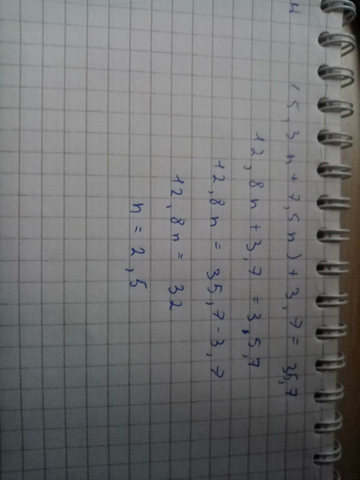 4 (5,3n + 7,5n) + 3,7 = 35,7
12,8n + 3,7 = 35,7
12,8n = 35,7 - 3,7
12,8n = 32
n = 2,5